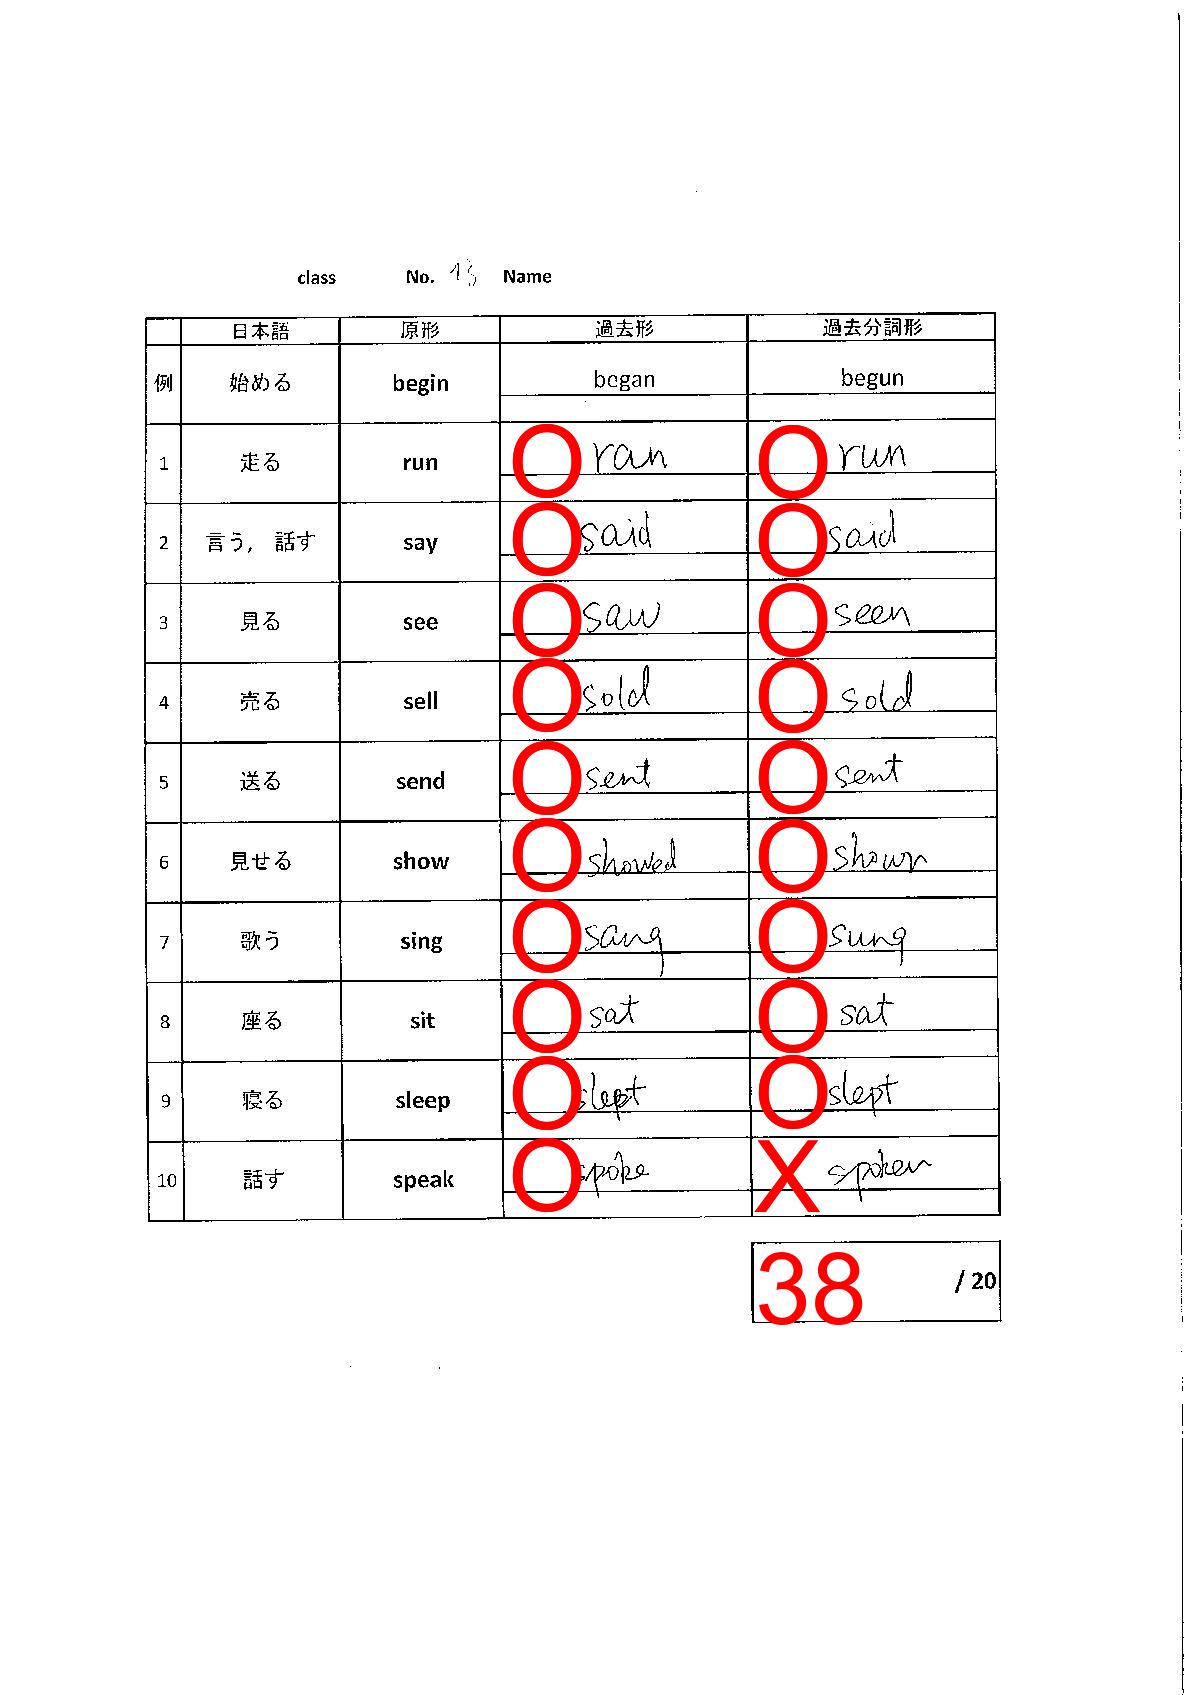 class No. 13 Name
日本語 原形 過去形 過去分詞形
例 始める begin began begun
1 走る run O ran O run
2 言う, 話す say O said O said
3 見る see O saw O seen
4 売る sell O sold O sold
5 送る send O sent O sent
6 見せる show O showed O shown
7 歌う sing O sang O sung
8 座る sit O sat O sat
9 寝る sleep O slept O slept
10 話す speak O spoke X spoken
38 / 20